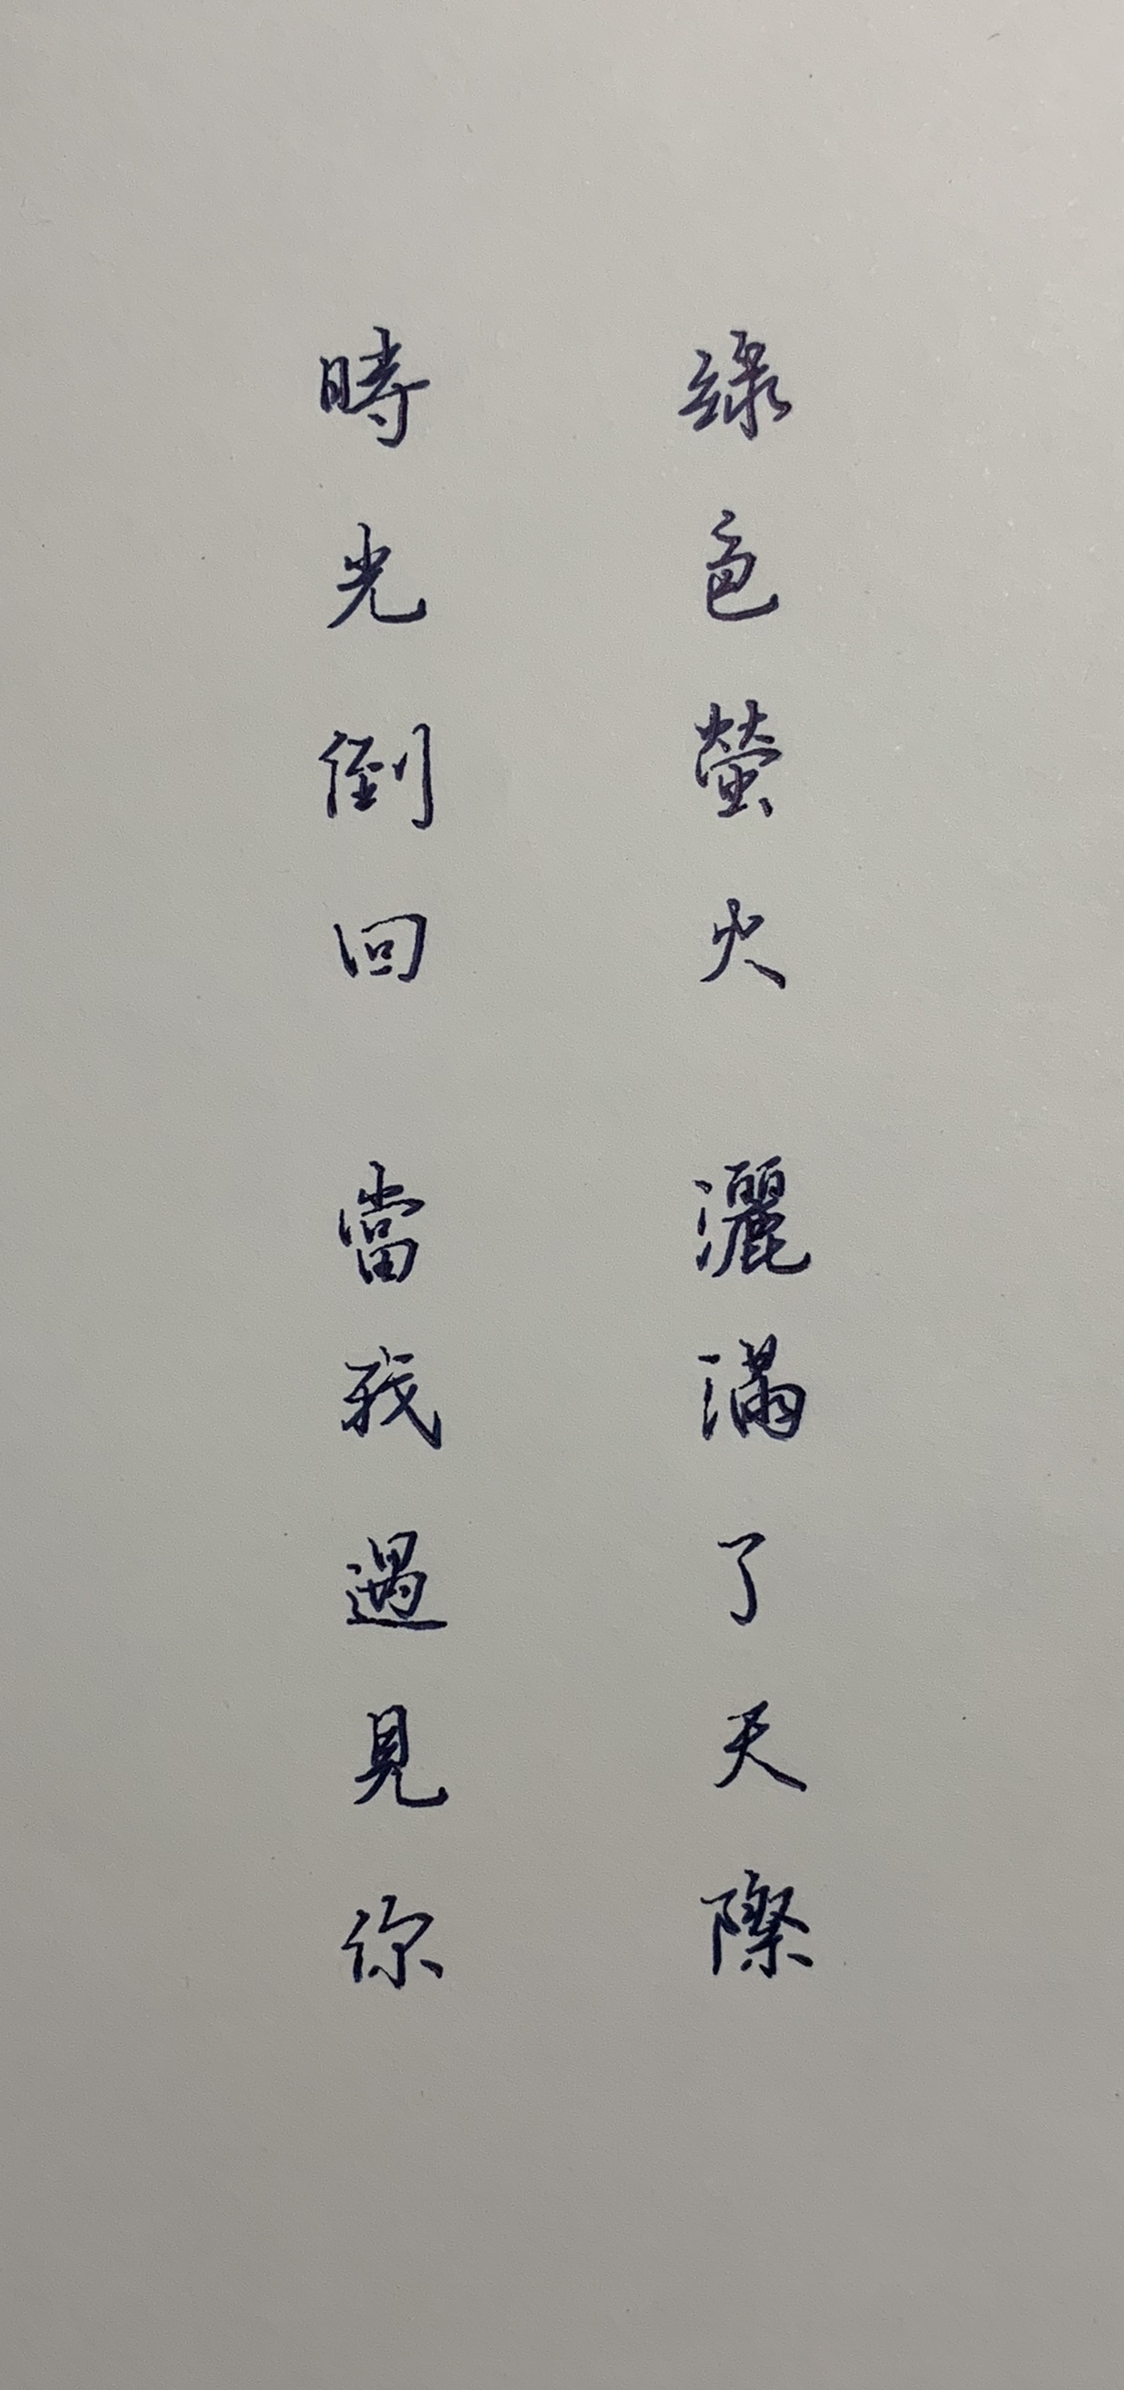 綠色螢火 灑滿了天際
時光倒回 當我遇見你